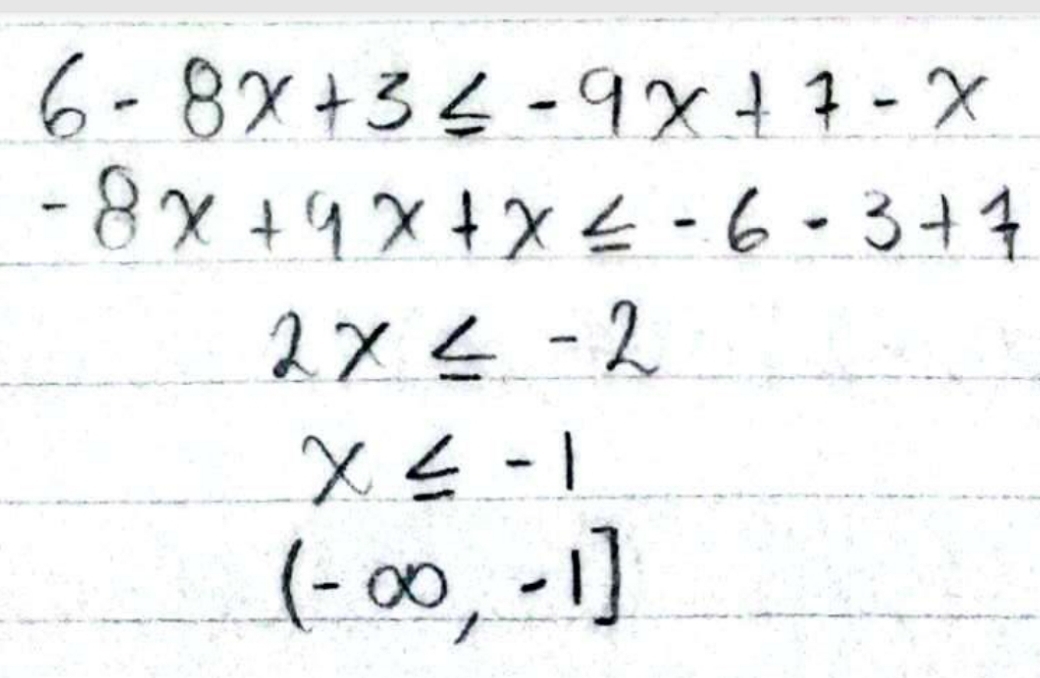 6 - 8x + 3 ≤ - 9x + 7 - x
- 8x + 9x + x ≤ - 6 - 3 + 7
2x ≤ - 2
x ≤ - 1
(- ∞, - 1]